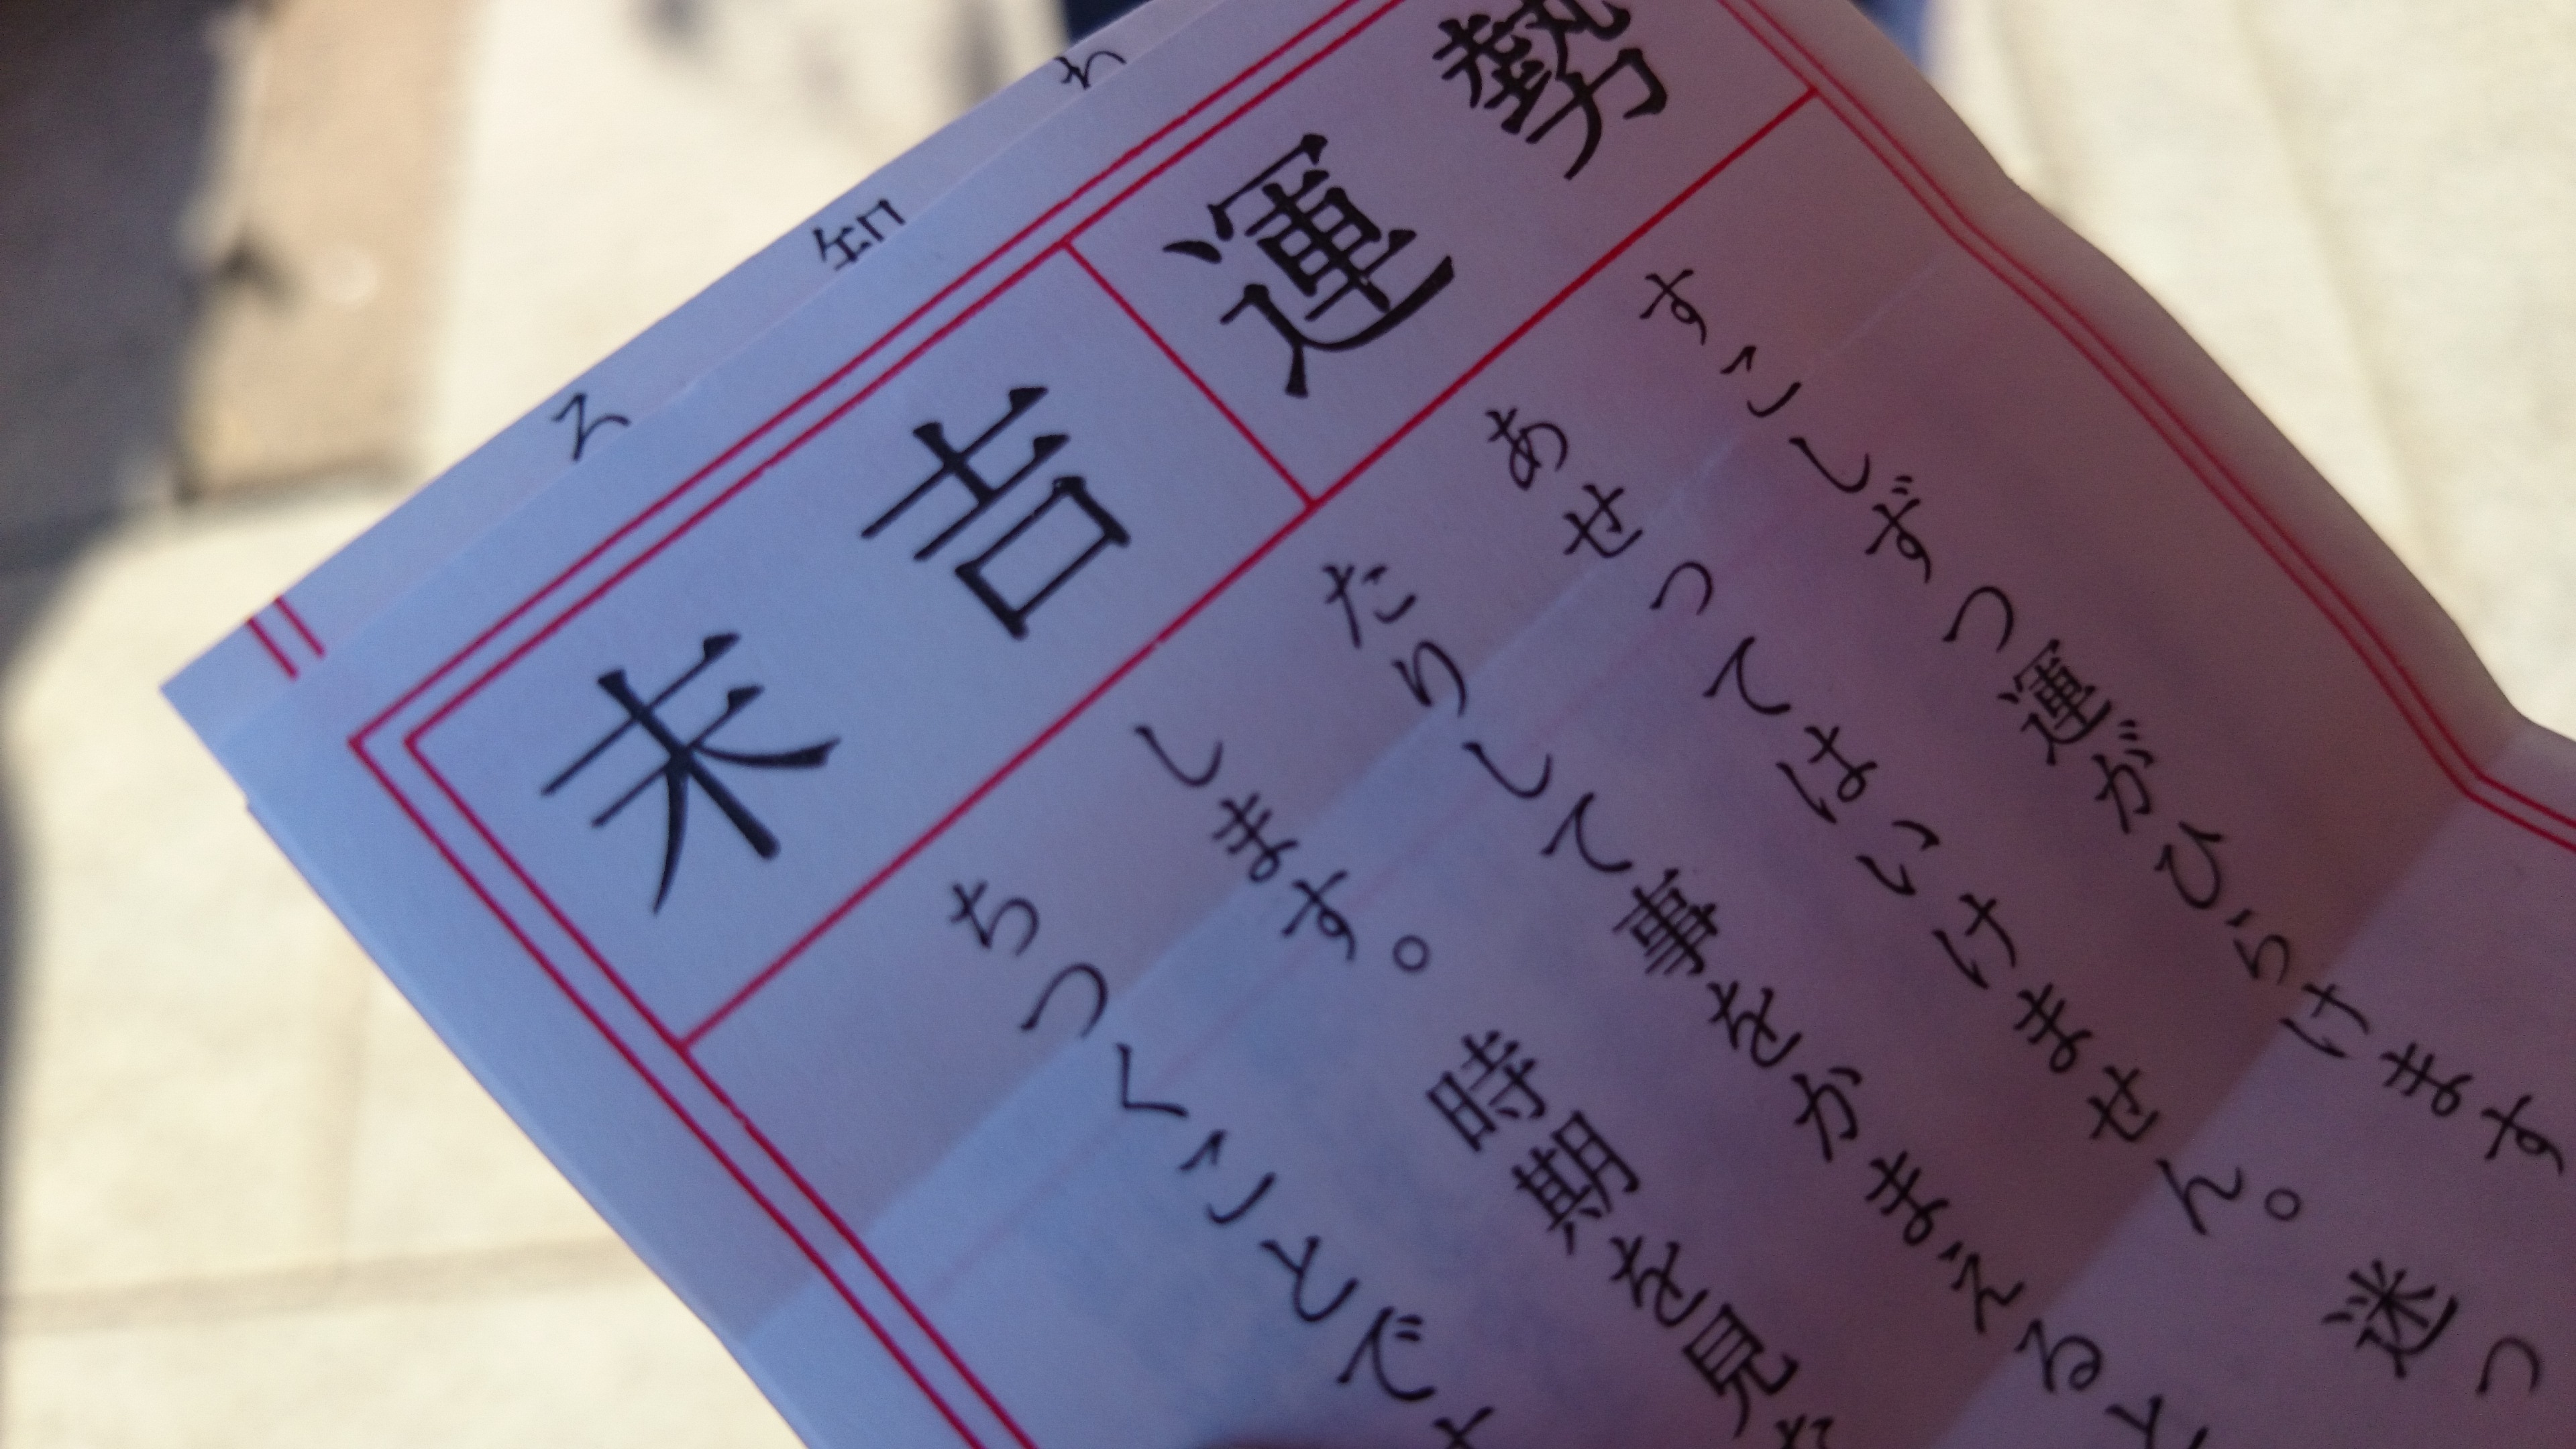 末吉
運勢
すこしずつ運がひらけます
あせってはいけません。迷っ
たりして事をかまえると
します。時期を見
ちつくことで